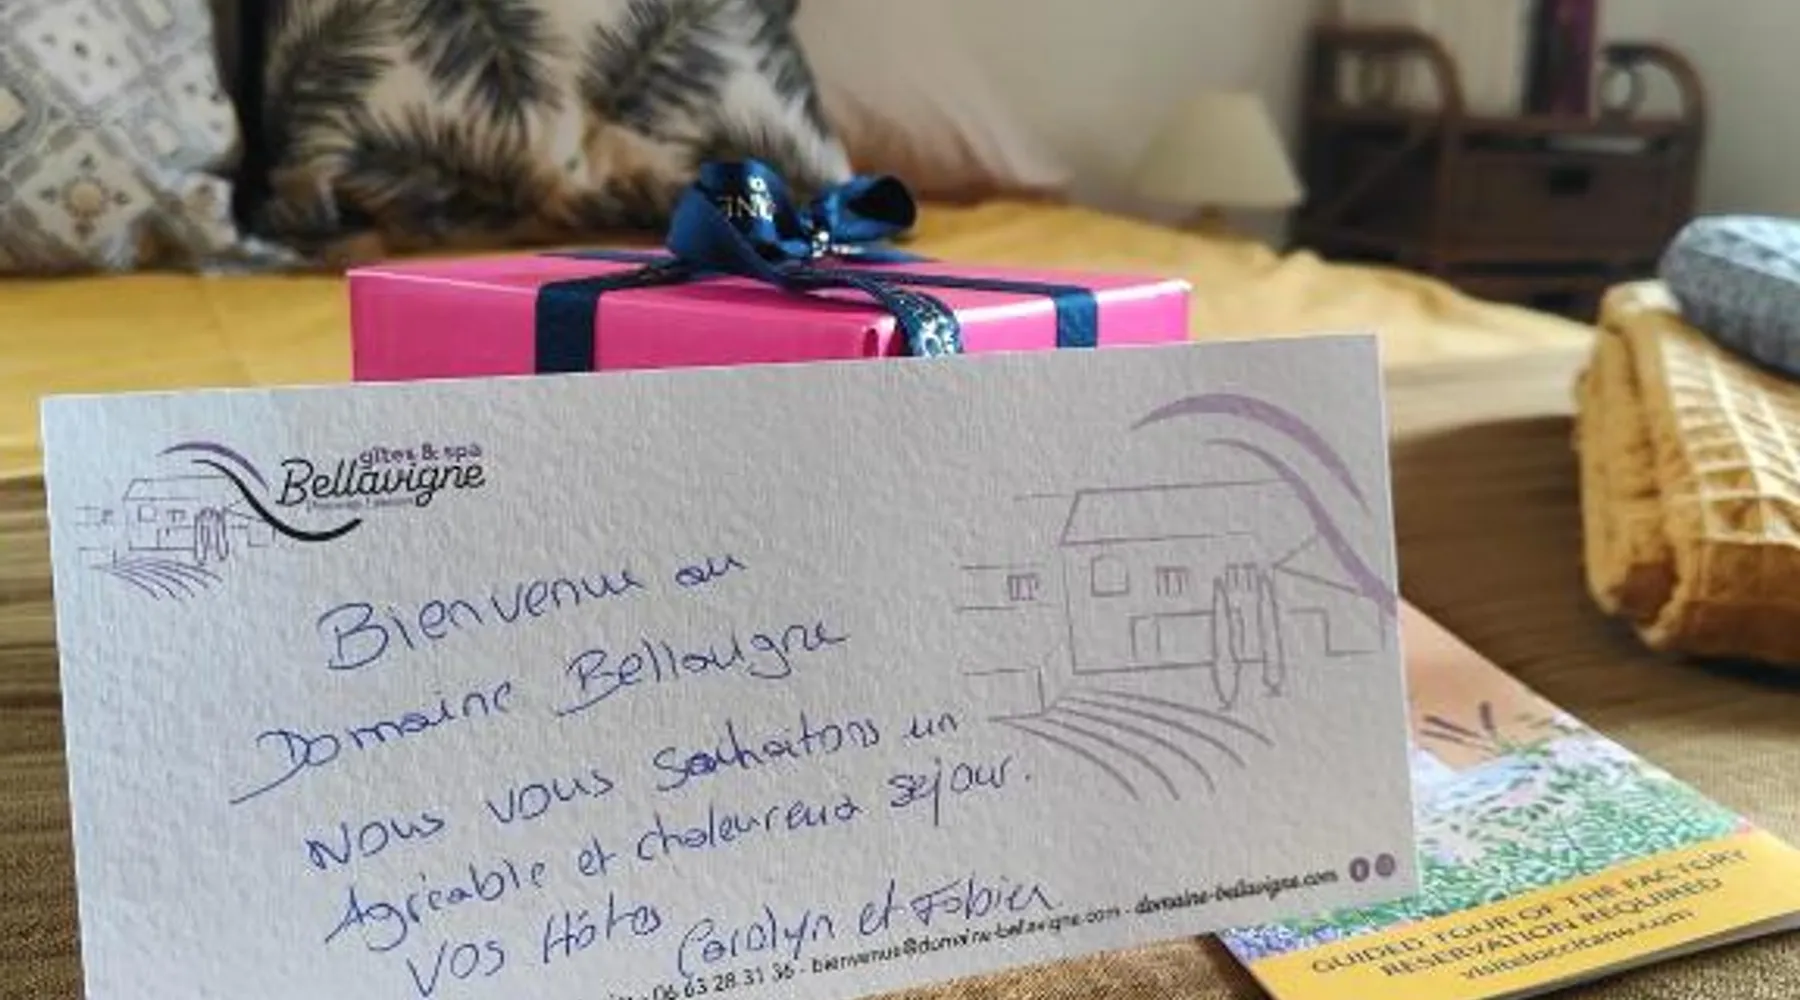 gîtes & spa
Bellavigne
Bienvenue au
Domaine Bellavigne
Nous vous souhaitons un
Agréable et chaleureux séjour.
Vos Hôtes Carolyn et Fabien
06 63 28 31 36 - bienvenue@domaine-bellavigne.com - domaine-bellavigne.com
GUIDED TOUR OF THE FACTORY
RESERVATION REQUIRED
visiteloccitane.com